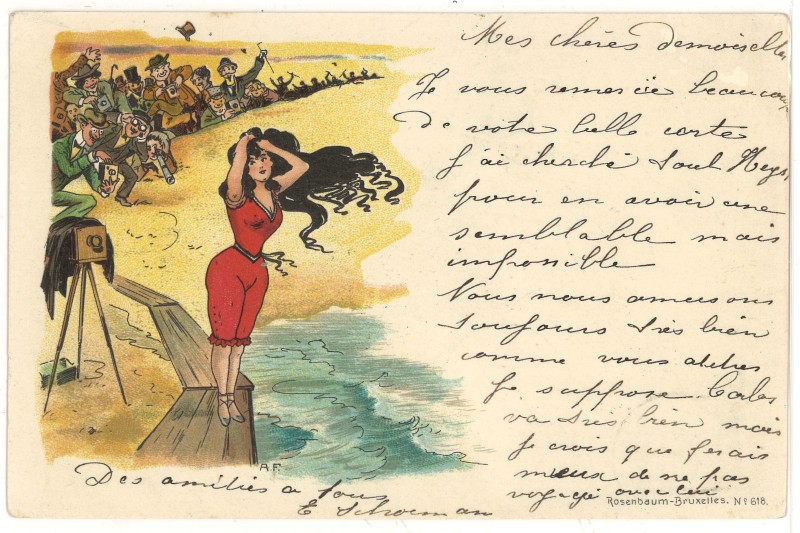 Mes chères demoiselles
Je vous remercie beaucoup
de votre belle carte
J'ai cherché tout
pour en avoir une
semblable mais
impossible
Nous nous amusons
toujours très bien
comme vous autres
je suppose.
va très bien mais
je crois que ferais
mieux de ne pas
voyagé avec lui
Des amitiés a tous
E Schoeman
A.F.
Rosenbaum-Bruxelles. No 618.